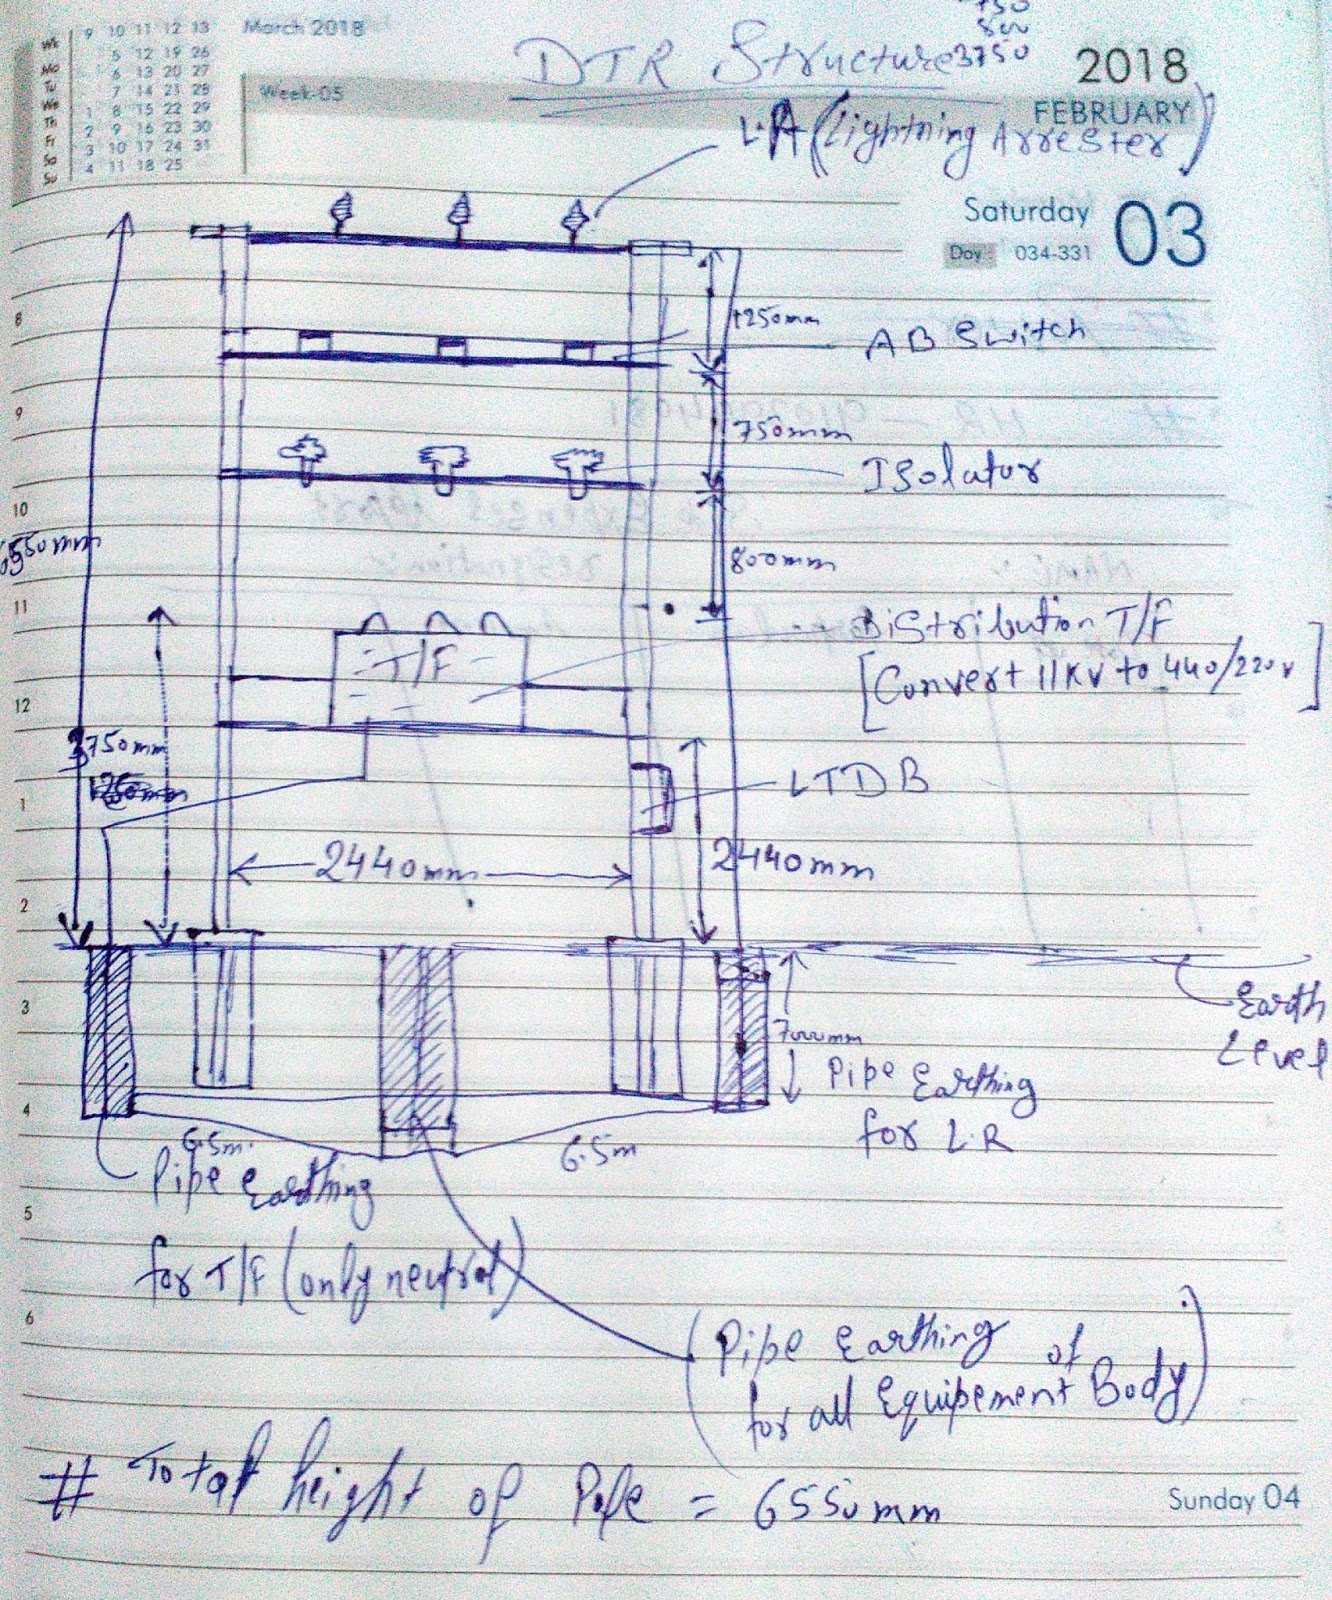 March 2018
9 10 11 12 13
Wk
Mo 5 12 19 26
Tu 6 13 20 27
We 7 14 21 28
Th 1 8 15 22 29
Fr 2 9 16 23 30
Sa 3 10 17 24 31
Su 4 11 18 25
Week-05
750
800
3750
DTR Structure
2018
FEBRUARY
L.A (Lightning Arrester)
Saturday 03
Day : 034-331
8
1250mm
AB Switch
9
750mm
Isolator
10
6550mm
800mm
11
Distribution T/F
T/F
[Convert 11KV to 440/220v]
12
3750mm
1
LTDB
2440mm
2440mm
2
3
Earth
Level
7000mm
Pipe Earthing
for L.R
4
6.5m
6.5m
Pipe Earthing
for T/F (only neutral)
5
6
(Pipe Earthing of
for all Equipement Body)
# Total height of Pole = 6550mm
Sunday 04